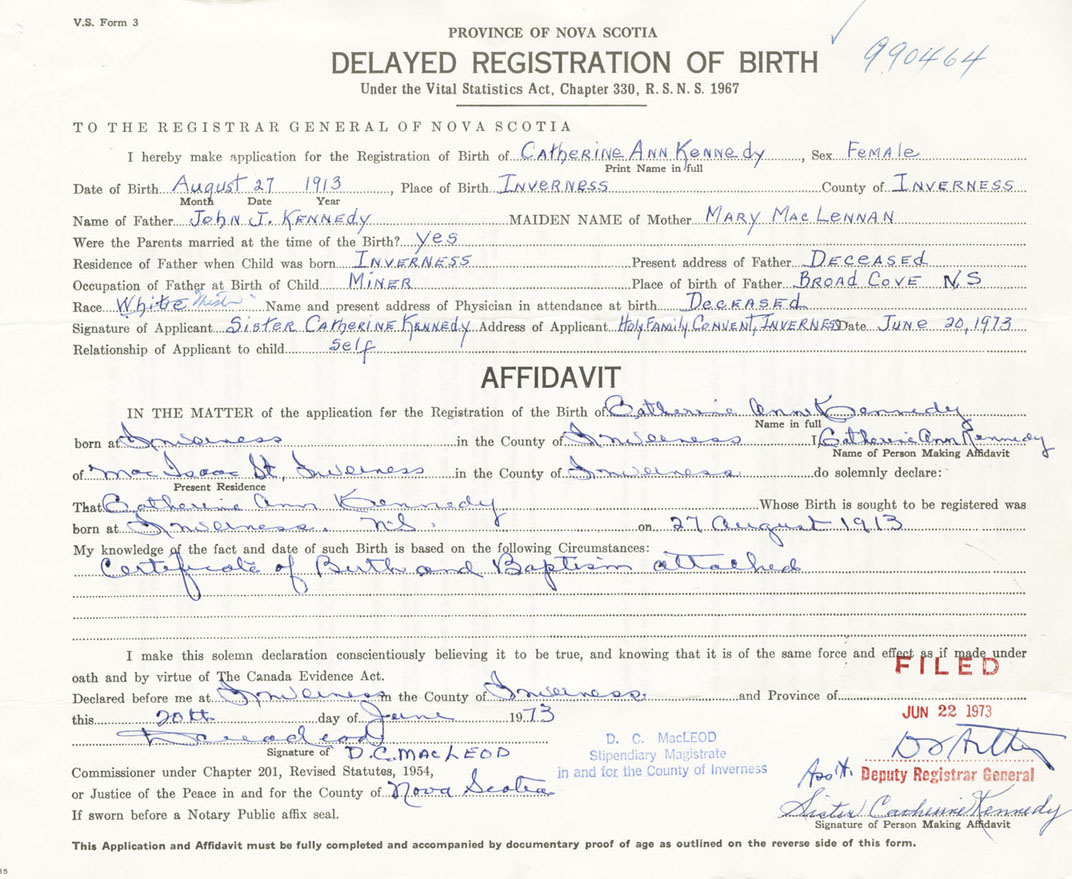 V.S. Form 3
990464
PROVINCE OF NOVA SCOTIA
DELAYED REGISTRATION OF BIRTH
Under the Vital Statistics Act, Chapter 330, R.S.N.S. 1967
TO THE REGISTRAR GENERAL OF NOVA SCOTIA
I hereby make application for the Registration of Birth of Catherine Ann Kennedy, Sex Female
Print Name in full
Date of Birth August 27 1913, Place of Birth Inverness County of Inverness
Month Date Year
Name of Father John J. Kennedy MAIDEN NAME of Mother Mary MacLennan
Were the Parents married at the time of the Birth? yes
Residence of Father when Child was born Inverness Present address of Father Deceased
Occupation of Father at Birth of Child Miner Place of birth of Father Broad Cove N.S
Race White Name and present address of Physician in attendance at birth Deceased
Signature of Applicant Sister Catherine Kennedy Address of Applicant Holy Family Convent, Inverness Date June 20, 1973
Relationship of Applicant to child self
AFFIDAVIT
IN THE MATTER of the application for the Registration of the Birth of Catherine Ann Kennedy
Name in full
born at Inverness in the County of Inverness I, Catherine Ann Kennedy
Name of Person Making Affidavit
of MacIsaac St, Inverness in the County of Inverness do solemnly declare:
Present Residence
That Catherine Ann Kennedy Whose Birth is sought to be registered was
born at Inverness, N.S. on 27 August 1913
My knowledge of the fact and date of such Birth is based on the following Circumstances:
Certificate of Birth and Baptism attached
I make this solemn declaration conscientiously believing it to be true, and knowing that it is of the same force and effect as if made under
oath and by virtue of The Canada Evidence Act.
FILED
Declared before me at Inverness in the County of Inverness and Province of
this 20th day of June 1973
JUN 22 1973
Signature of D.C. MacLeod
D. C. MacLEOD
Stipendiary Magistrate
in and for the County of Inverness
Commissioner under Chapter 201, Revised Statutes, 1954,
Ass't. Deputy Registrar General
or Justice of the Peace in and for the County of Nova Scotia
Sister Catherine Kennedy
If sworn before a Notary Public affix seal.
Signature of Person Making Affidavit
This Application and Affidavit must be fully completed and accompanied by documentary proof of age as outlined on the reverse side of this form.